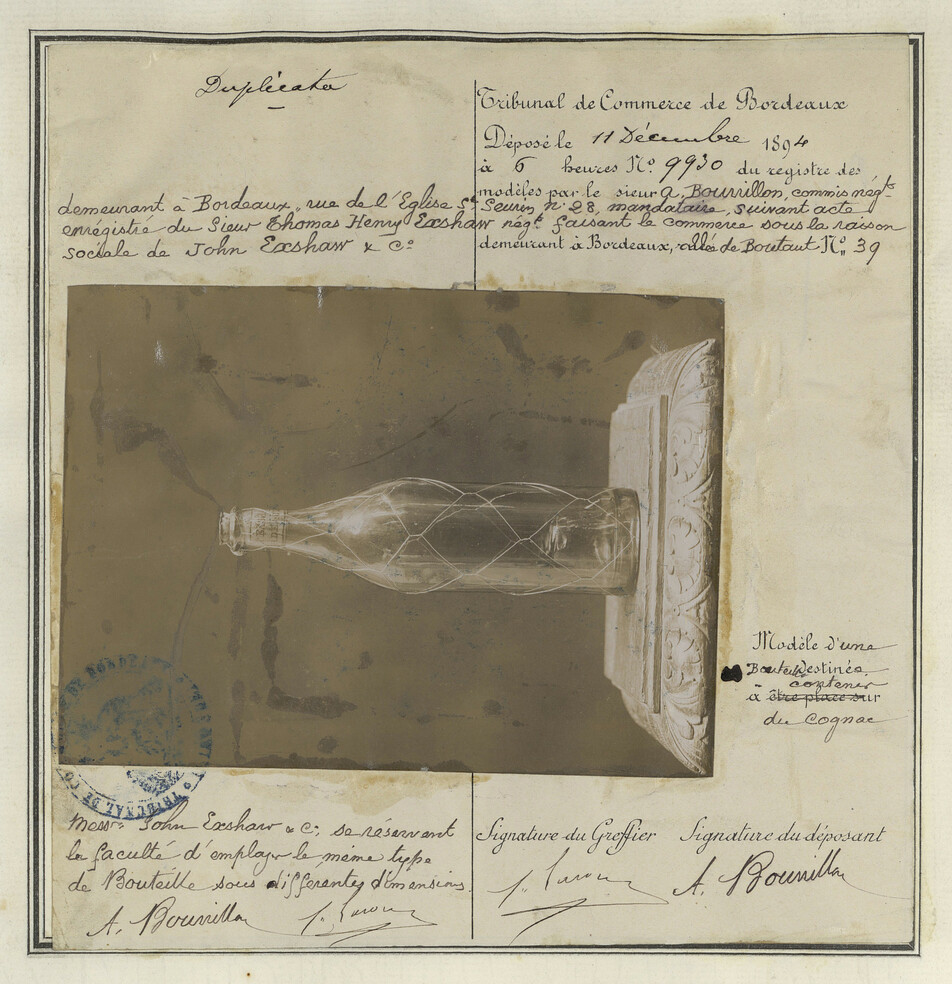 Duplicata
Tribunal de Commerce de Bordeaux
Déposé le 11 Décembre 1894
à 6 heures No. 9930 du registre des
modèles par le sieur A. Bourrillon, commis négt.
demeurant à Bordeaux, rue de l'Église St. Seurin, No. 28, mandataire, suivant acte
enrégistré du Sieur Thomas Henry Exshaw négt. faisant le commerce sous la raison
sociale de John Exshaw & Co. demeurant à Bordeaux, allée de Boutaut No. 39
Modèle d'une
Bouteille destinée
contenir
à être placé sur
du cognac
TRIBUNAL DE COMMERCE DE BORDEAUX
Messrs. John Exshaw & C; se réservent
la faculté d'employer le même type
de Bouteille sous différentes dimensions.
Signature du Greffier Signature du déposant
A. Bourrillon
A. Bourrillon